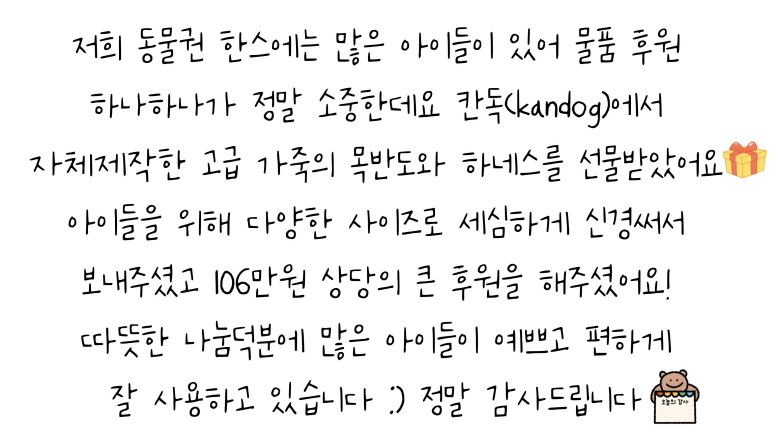 저희 동물권 한스에는 많은 아이들이 있어 물품 후원
하나하나가 정말 소중한데요 칸독(kandog)에서
자체제작한 고급 가죽의 목반도와 하네스를 선물받았어요
아이들을 위해 다양한 사이즈로 세심하게 신경써서
보내주셨고 106만원 상당의 큰 후원을 해주셨어요!
따뜻한 나눔덕분에 많은 아이들이 예쁘고 편하게
잘 사용하고 있습니다 :) 정말 감사드립니다
오늘의 감사